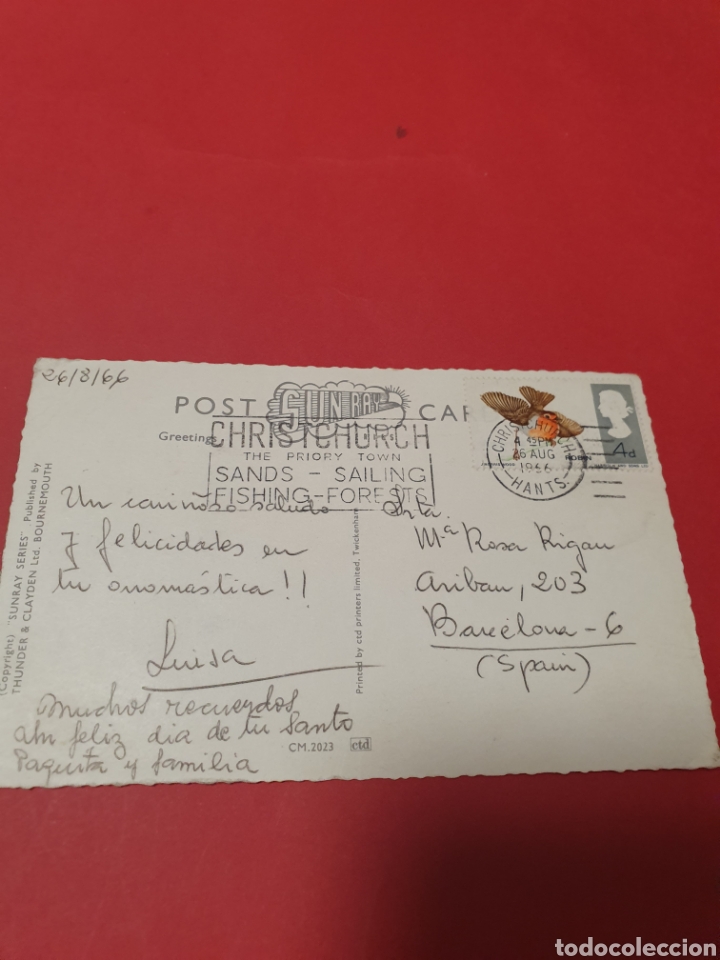 26/8/66
POST CAR
Greetings
SUN RAY
CHRISTCHURCH
THE PRIORY TOWN
SANDS - SAILING
FISHING - FORESTS
CHRISTCHURCH
4 45 PM
26 AUG
1966
HANTS.
ROBIN
4d
Un cariñoso saludo
y felicidades en
tu onomástica!!
Luisa
Muchos recuerdos
feliz dia de tu Santo
Paquita y familia
Srta.
Mª Rosa Rigau
Aribau, 203
Barcelona - 6
(Spain)
(Copyright) "SUNRAY SERIES" Published by
THUNDER & CLAYDEN Ltd. BOURNEMOUTH
Printed by ctd printers limited. Twickenham
CM.2023 ctd
todocoleccion